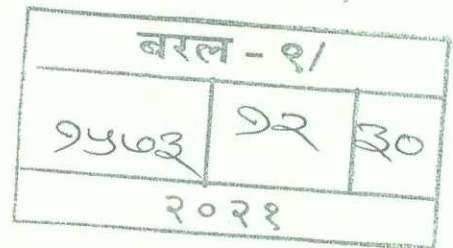 बरल - १/
१५७३ १२ ३०
२०२१